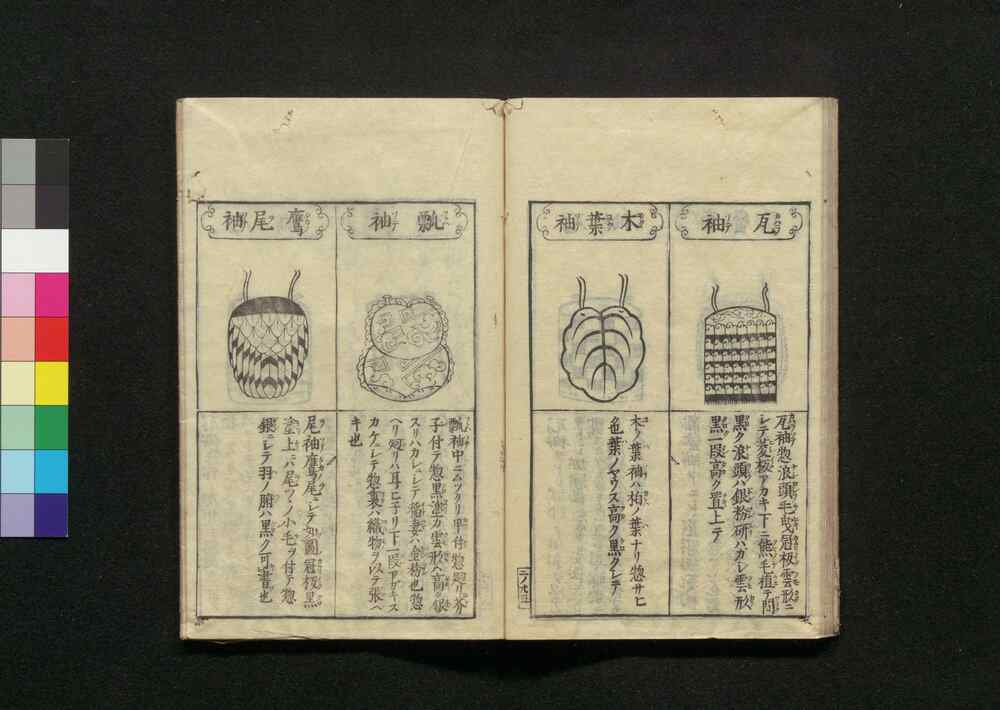 瓦袖
瓦袖惣浪頭毛曳冠板雲形ニ
シテ菱板アカキ下ニ熊毛植テ間
黒ク浪頭ハ銀粉研ハカシ雲形
黒一段高ク置上テ
木葉袖
木ノ葉袖ハ柏ノ葉ナリ惣サヒ
色葉ノヤウス高ク黒クシテ
瓢袖
瓢袖中ニ甲付惣廻リ芥
子付テ惣黒塗カ雲形ヘ高ク銀
スリハカシシテ稲妻ハ金粉也惣
ヘリ廻リハ耳ヒ子リ下一段アガキス
カケシテ惣裏ハ織物ヲ以テ張ヘ
キ也
鷹尾袖
尾袖鷹尾ニシテ如圖冠板黒
塗上ハ尾ツノ小毛ヲ付テ惣
銀ニシテ羽ノ腑ハ黒ク可畫也